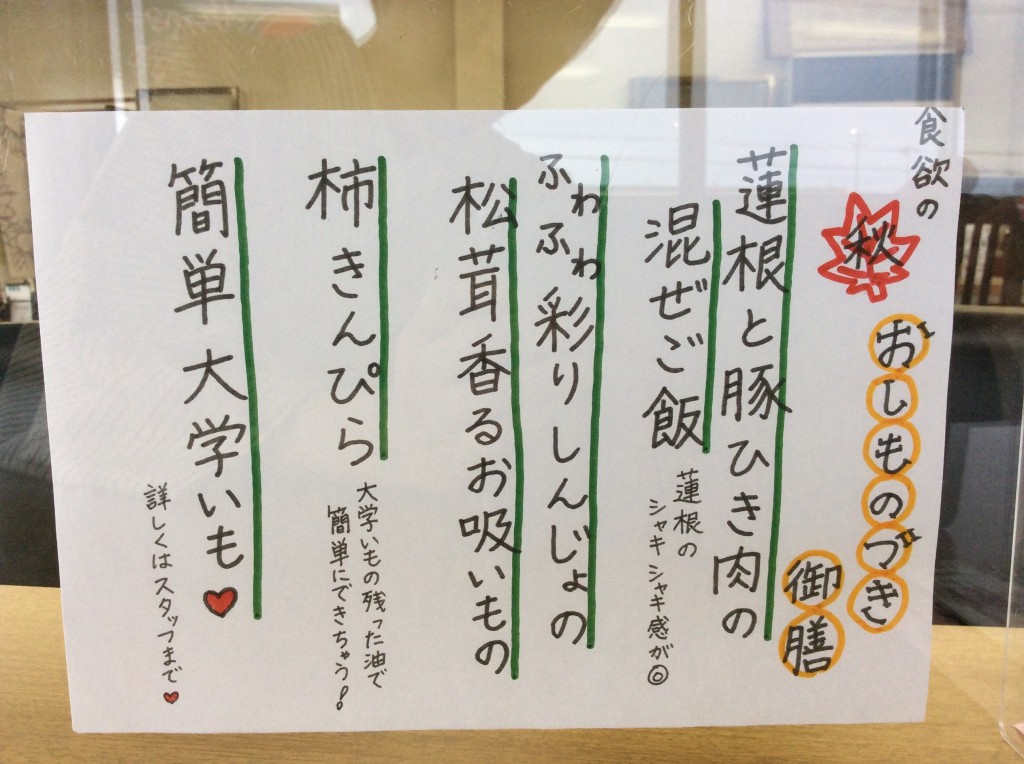 食欲の
秋
おしものづき
御膳
蓮根と豚ひき肉の
混ぜご飯
蓮根の
シャキシャキ感が◎
ふわふわ彩りしんじょの
松茸香るお吸いもの
柿きんぴら
大学いもの残った油で
簡単にできちゃう!
簡単大学いも♥
詳しくはスタッフまで♥